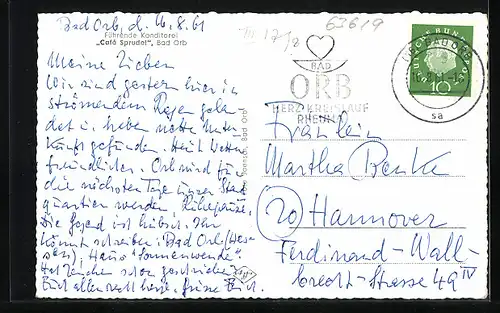 Bad Orb, d. 16.8.61
Führende Konditorei
„Café Sprudel", Bad Orb
Meine Lieben
Wir sind gestern hier in
strömendem Regen gelan-
det u. haben nette Unter-
kunft gefunden. Heut Wetter
freundlicher. Orb wird für
die nächsten Tage unser Stand
quartier werden, Ruhepause,
die Gegend ist hübsch. Ihr
könnt schreiben: Bad Orb (Hes-
sen), Haus "Sonnenwende".
Hat schon geschrieben?
Euch allen recht herzl. Grüße
III 17/8
63619
BAD
ORB
HERZ · KREISLAUF
RHEUMA
BAD ORB
16.8.61
sa
DEUTSCHE BUNDESPOST
10
Bad Orb
Fräulein
Martha Benke
20 Hannover
Ferdinand-Wall-
brecht-Strasse 49 IV